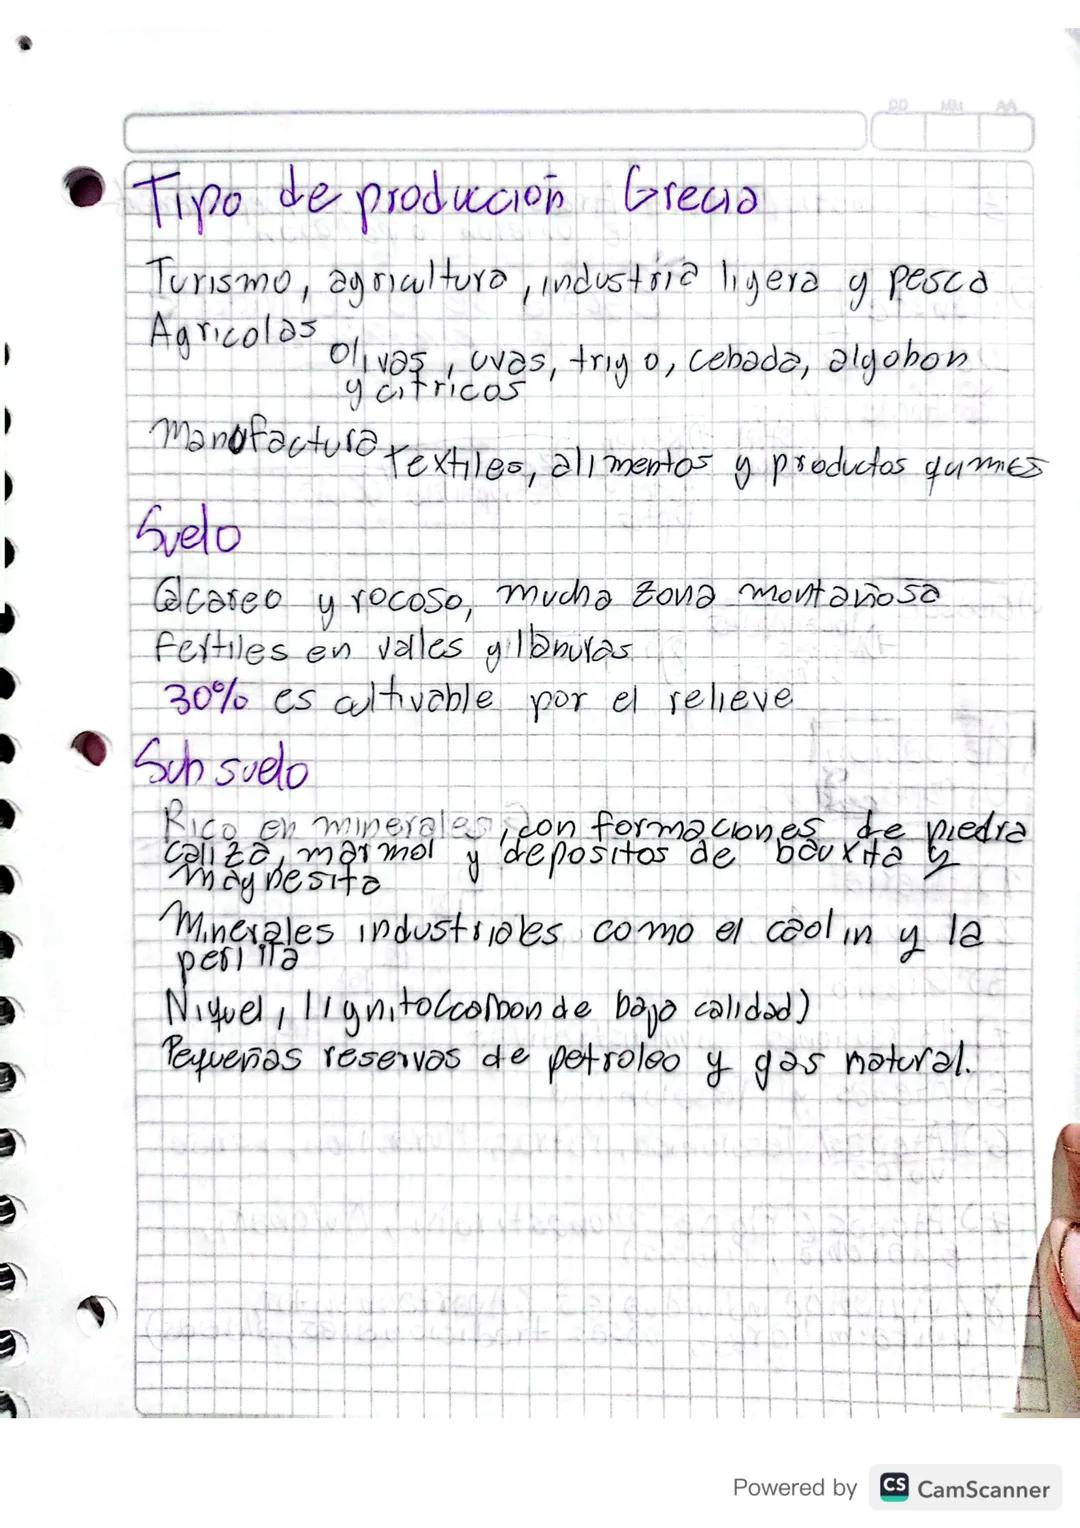 DD MM AA
Tipo de producción Grecia
Turismo, agricultura, industria ligera y pesca
Agricolas
Olivas, uvas, trigo, cebada, algobon
y citricos
Manofactura
Textiles, alimentos y productos
Suelo
Calcareo y rocoso, mucha zona montañosa
Fertiles en valles y llanuras
30% es cultivable por el relieve
Sub suelo
Rico en minerales, con formaciones de piedra
caliza, marmol y depositos de bauxita y
magnesita
Minerales industriales como el caolin y la
perlita
Niquel, lignito(carbon de bajo calidad)
Pequeñas reservas de petroleo y gas natural.
Powered by CS CamScanner